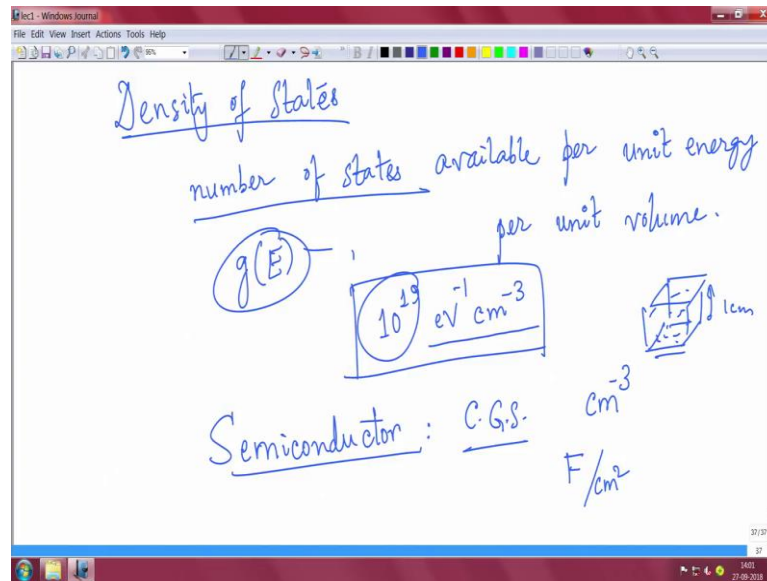 lec1 - Windows Journal
File Edit View Insert Actions Tools Help
96%
B I
Density of States
number of states available per unit energy
per unit volume.
g(E)
10^19 eV^-1 cm^-3
1cm
Semiconductor : C.G.S. cm^-3
F/cm^2
37/37
37
14:01
27-09-2018